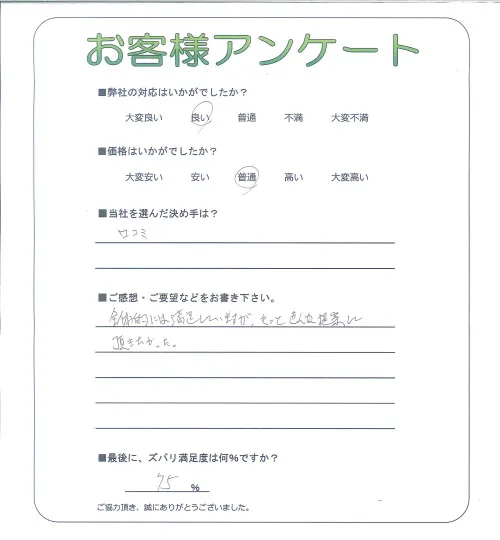 お客様アンケート
■弊社の対応はいかがでしたか？
大変良い 良い 普通 不満 大変不満
■価格はいかがでしたか？
大変安い 安い 普通 高い 大変高い
■当社を選んだ決め手は？
口コミ
■ご感想・ご要望などをお書き下さい。
全体的には満足していますが、もっと色々な提案し
頂きたかった。
■最後に、ズバリ満足度は何%ですか？
75 %
ご協力頂き、誠にありがとうございました。